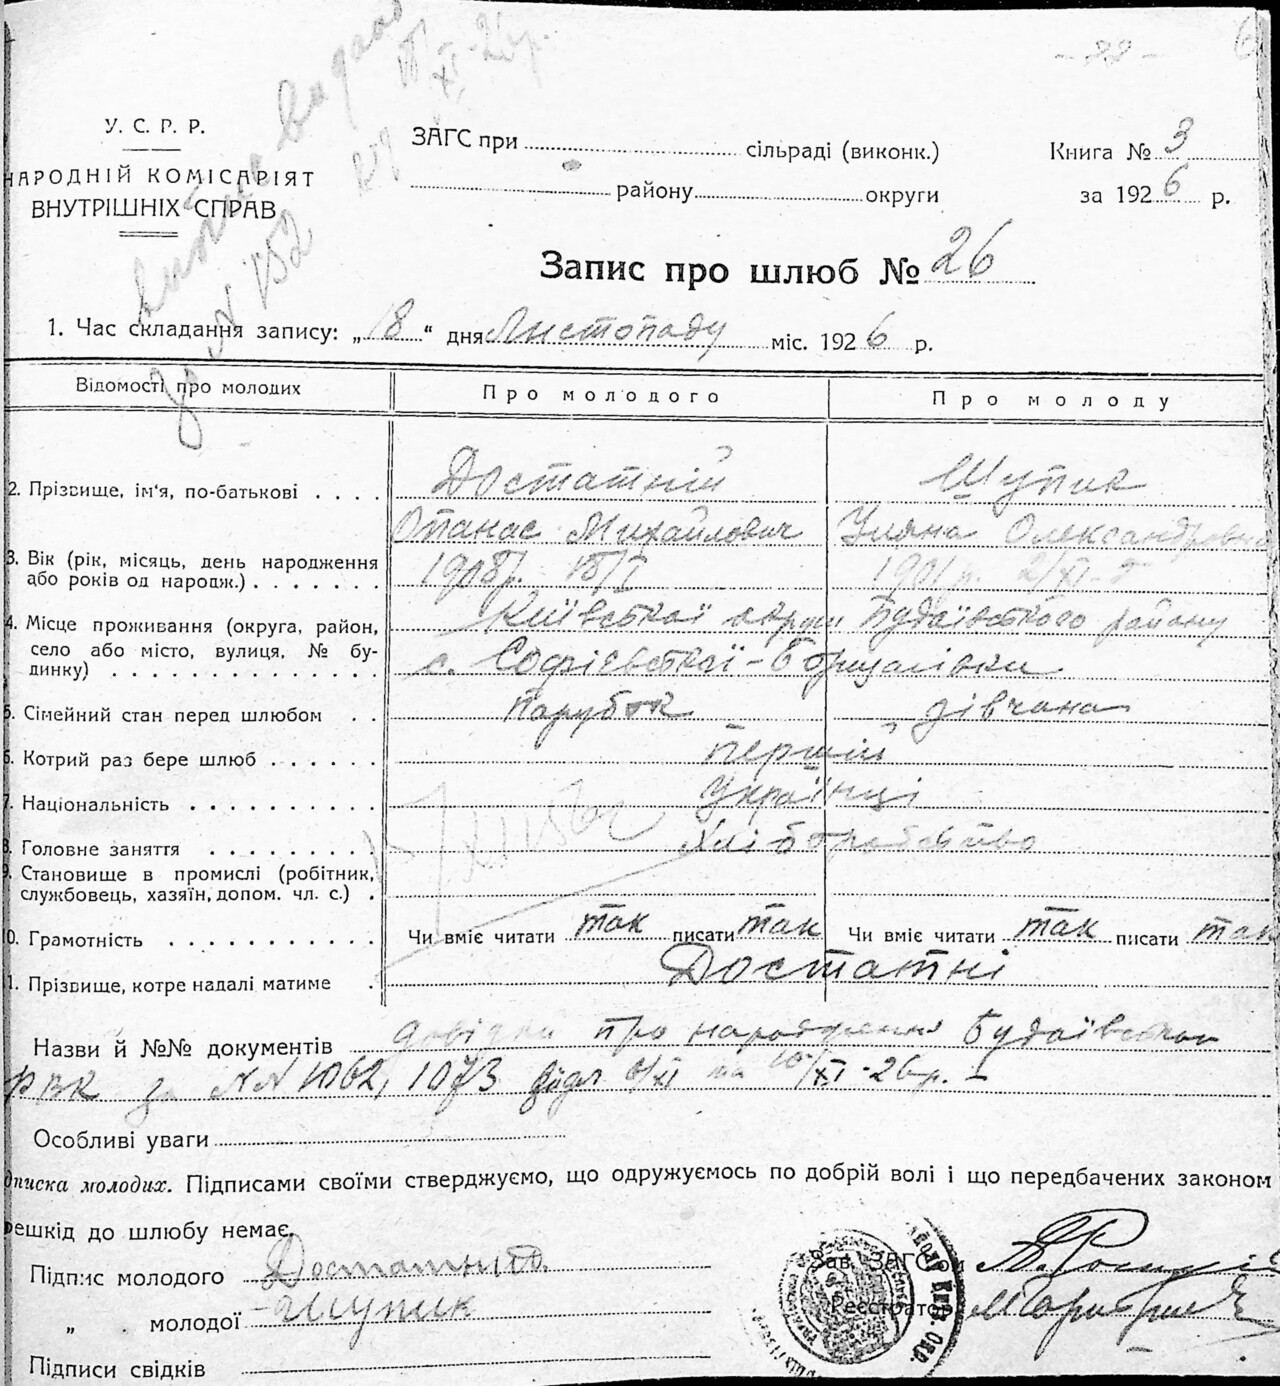 - 22 -
видано
18/XI-26р.
№ 152
У. С. Р. Р.
НАРОДНІЙ КОМІСАРІЯТ
ВНУТРІШНІХ СПРАВ
ЗАГС при сільраді (виконк.)
району округи
Книга № 3
за 1926 р.
Запис про шлюб № 26
1. Час складання запису: „18“ дня Листопаду міс. 1926 р.
Відомості про молодих Про молодого Про молоду
2. Прізвище, ім'я, по-батькові . . . . Достатній Шупик
Опанас Михайлович Уляна Олександровна
3. Вік (рік, місяць, день народження
або років од народж.) . . . . . . . 1908р. 18/I 1901р. 2/XI
4. Місце проживання (округа, район, Київської округи Будаївського району
село або місто, вулиця, № бу-
динку) . . . . . . . . . . . . . . с. Софієвської-Борщагівки
5. Сімейний стан перед шлюбом . . парубок дівчина
6. Котрий раз бере шлюб . . . . . . перший
7. Національність . . . . . . . . . . Українці
8. Головне заняття . . . . . . . . Хліборобство
9. Становище в промислі (робітник,
службовець, хазяїн, допом. чл. с.) .
10. Грамотність . . . . . . . . . . . Чи вміє читати так писати так Чи вміє читати так писати так
11. Прізвище, котре надалі матиме . Достатні
Назви й №№ документів довідки про народження Будаївської
РВК за №№ 1062, 1073 від 6/XI та 10/XI-26р.
Особливі уваги
дписка молодих. Підписами своїми стверджуємо, що одружуємось по добрій волі і що передбачених законом
решкід до шлюбу немає.
Підпис молодого Достатній
„ молодої Шупик
Підписи свідків
Зав. ЗАГС'ом
Реєстратор